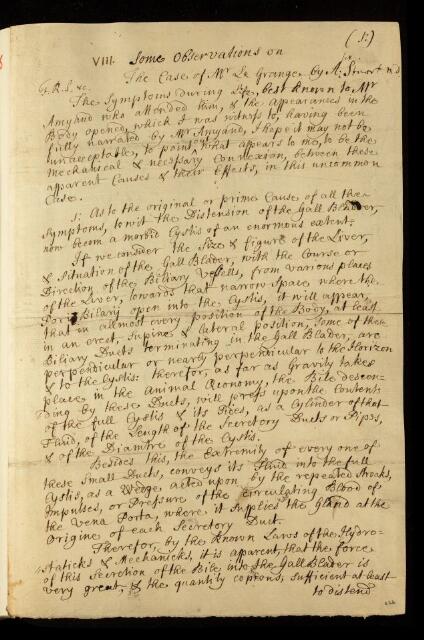 (1.)
VIII. Some Observations on
The Case of Mr Le Grange by Ar: Stuart M.D
F.R.S. &c.
The Symptoms during Life, best known to Mr
Amyand who attended him, & the appearances in the
Body opened, which I was witness to, having been
fully narrated by Mr Amyand, I hope it may not be
unacceptable, to point, what appears to me, to be the
Mechanical & necessary Connexion, between these
apparent Causes & their Effects, in this uncommon
Case.
1: As to the original or prime Cause of all the
Symptoms, to wit the Distension of the Gall Bladder,
now becom a morbid Cystis of an enormous extent:
If we consider the Size & figure of the Liver,
& Situation of the Gall Bladder, with the Course or
Direction of the Biliary Vessells, from various places
of the Liver, towards that narrow Space, where the
Pori Bilarij open into the Cystis, it will appear,
that in allmost every position of the Body, at least
in an erect, Supine & lateral position, Some of these
Biliary Ducts terminating in the Gall Blader, are
perpendicular or nearly perpendicular to the Horizon
& to the Cystis: therefor, as far as Gravity takes
place in the Animal Œconomy, the Bile descen-
ding by these Ducts, will press upon the Contents
of the full Cystis & its Sides, as a Cylinder of that
Fluid, of the Length of the Secretory Ducts or Pipes,
& of the Diamtre of the Cystis.
Besides this, the Extremity of every one of
these Small Ducts, conveys its Fluid into the full
Cystis, as a Wedge, acted upon by the repeated Stroaks,
Impulses, or Pressure of the circulating Blood of
the Vena Porta, where it Supplies the Gland at the
Origine of each Secretory Duct.
Therefor, by the Known Laws of the Hydro-
staticks & Mechanicks, it is apparent, that the force
of this Secretion of the Bile into the Gall Blader is
very great, & the quantity copious, sufficient at least
to distend